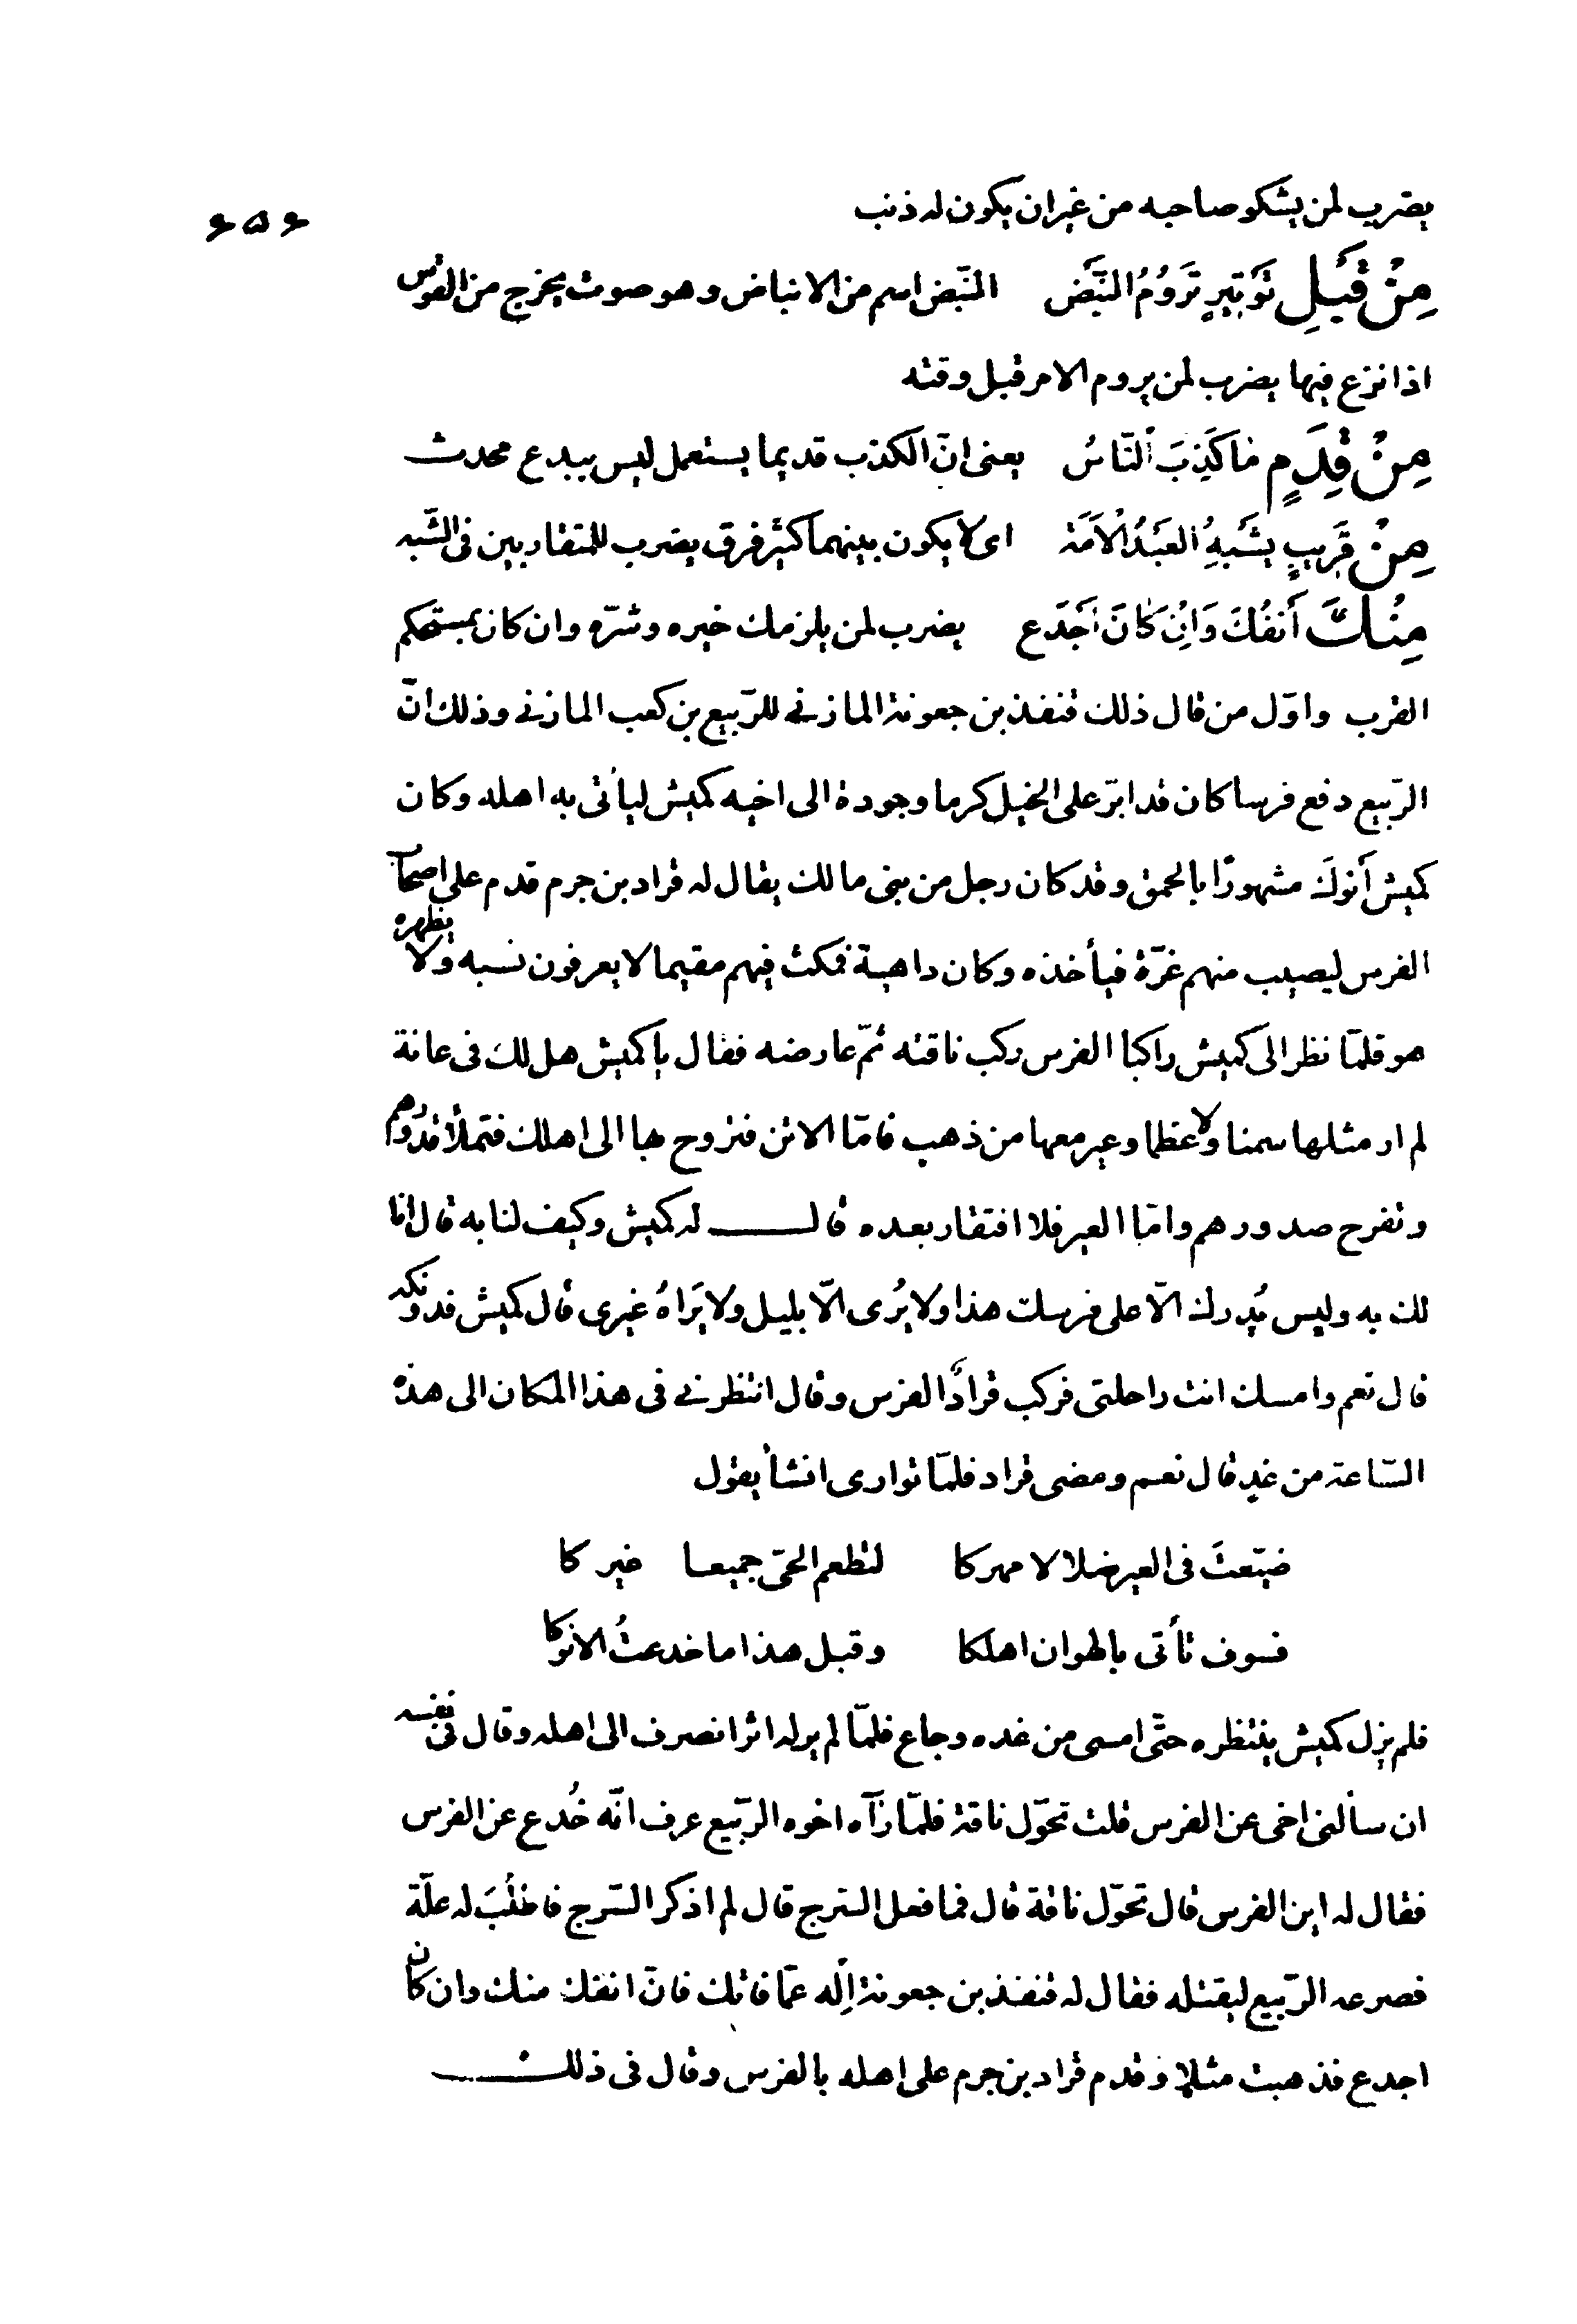 يضرب لمن يشكو صاحبه من غير ان يكون له ذنب
۶۵۶
مِنْ قَبْلِ تَوْتِيرٍ تَرُومُ النَّبْضَ النّبض اسم من الانباض وهو صوت يخرج من القوس
اذا نزع فيها يضرب لمن يروم الامر قبل وقته
مِنْ قِدَمٍ مَا كَذِبَ النَّاسُ يعنى انّ الكذب قديما يستعمل ليس ببدع محدث
مِنْ قَرِيبٍ يُشْبِهُ الْعَبْدُ الْأَمَةَ اى لا يكون بينهما كثير فرق يضرب للمتقاربين فى الشّبه
مِنْكَ أَنْفُكَ وَإِنْ كَانَ أَجْدَع يضرب لمن يلزمك خيره وشرّه وان كان بمستحكم
القرب واوّل من قال ذلك قنفذ بن جعونة المازنى للرّبيع بن كعب المازنى وذلك انّ
الرّبيع دفع فرسا كان قد ابرّ على الخيل كرما وجودة الى اخيه كميش ليأتى به اهله وكان
كميش أنوكَ مشهورًا بالحمق وقد كان رجل من بنى مالك يقال له قراد بن جرم قدم على اصحاب
الفرس ليصيب منهم غرّة فيأخذه وكان داهية فمكث فيهم مقيما لا يعرفون نسبه ولا يظهره
هو فلمّا نظر الى كميش راكبا الفرس ركب ناقته ثمّ عارضه فقال يا كميش هل لك فى عانة
لم ار مثلها سمنا ولا عظما وعير معها من ذهب فامّا الاتن فتروح بها الى اهلك فتملأ قدورهم
وتفرح صدورهم وامّا العير فلا افتقار بعده قال له كميش وكيف لنا به قال انا
لك به وليس يُدرك الّا على فرسك هذا ولا يُرى الّا بليل ولا يَراهُ غيرى قال كميش فدونكه
قال نعم وامسك انت راحلتى فركب قرادٌ الفرس وقال انتظرنى فى هذا المكان الى هذه
السّاعة من غدٍ قال نعم ومضى قراد فلمّا توارى انشأ يقول
ضيّعتَ فى العير ضلالا مهركا لتطعم الحىّ جميعا غيركا
فسوف تأتى بالهوان اهلكا وقبل هذا ما خدعتُ الانوكا
فلم يزل كميش ينتظره حتّى امسى من غده وجاع فلمّا لم ير له اثرا انصرف الى اهله وقال فى نفسه
ان سألنى اخى عن الفرس قلت تحوّل ناقة فلمّا رآه اخوه الرّبيع عرف انّه خُدع عن الفرس
فقال له اين الفرس قال تحوّل ناقة قال فما فعل السّرج قال لم اذكر السّرج فاطلُبَ له علّة
فصرعه الرّبيع ليقتله فقال له قنفذ بن جعونة اِلْه عمّا فاتك فانّ انفك منك وان كان
اجدع فذهبت مثلا وقدم قراد بن جرم على اهله بالفرس وقال فى ذلك